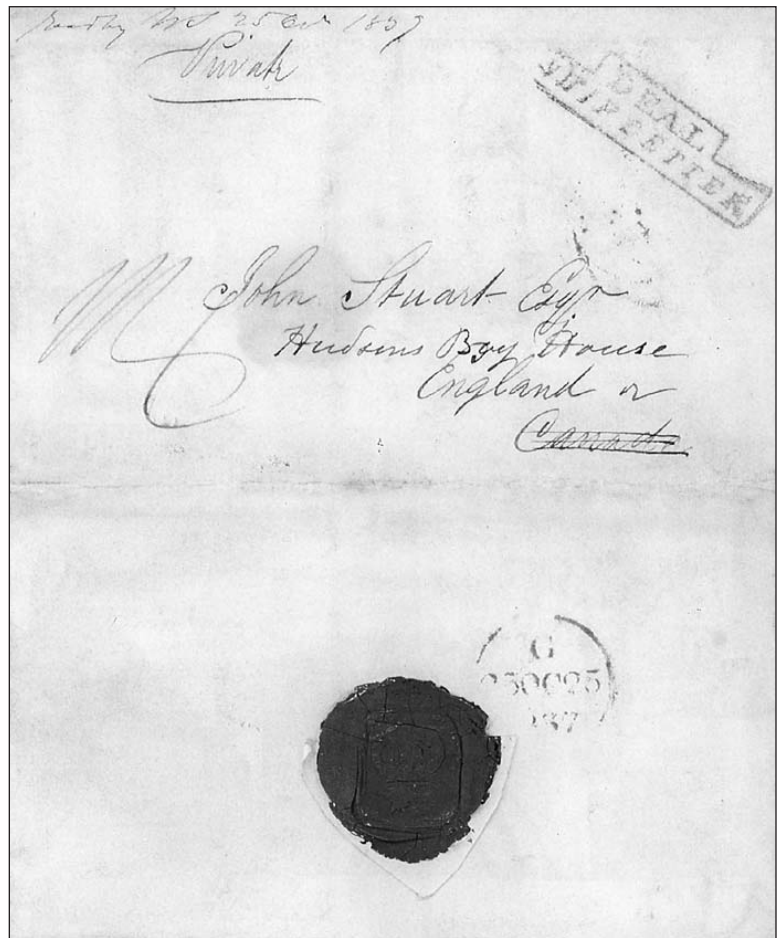 25 Oct 1837
Private
DEAL
SHIP LETTER
John Stuart Esqr
Hudsons Bay House
England or
Canada
G
25OC25
1837